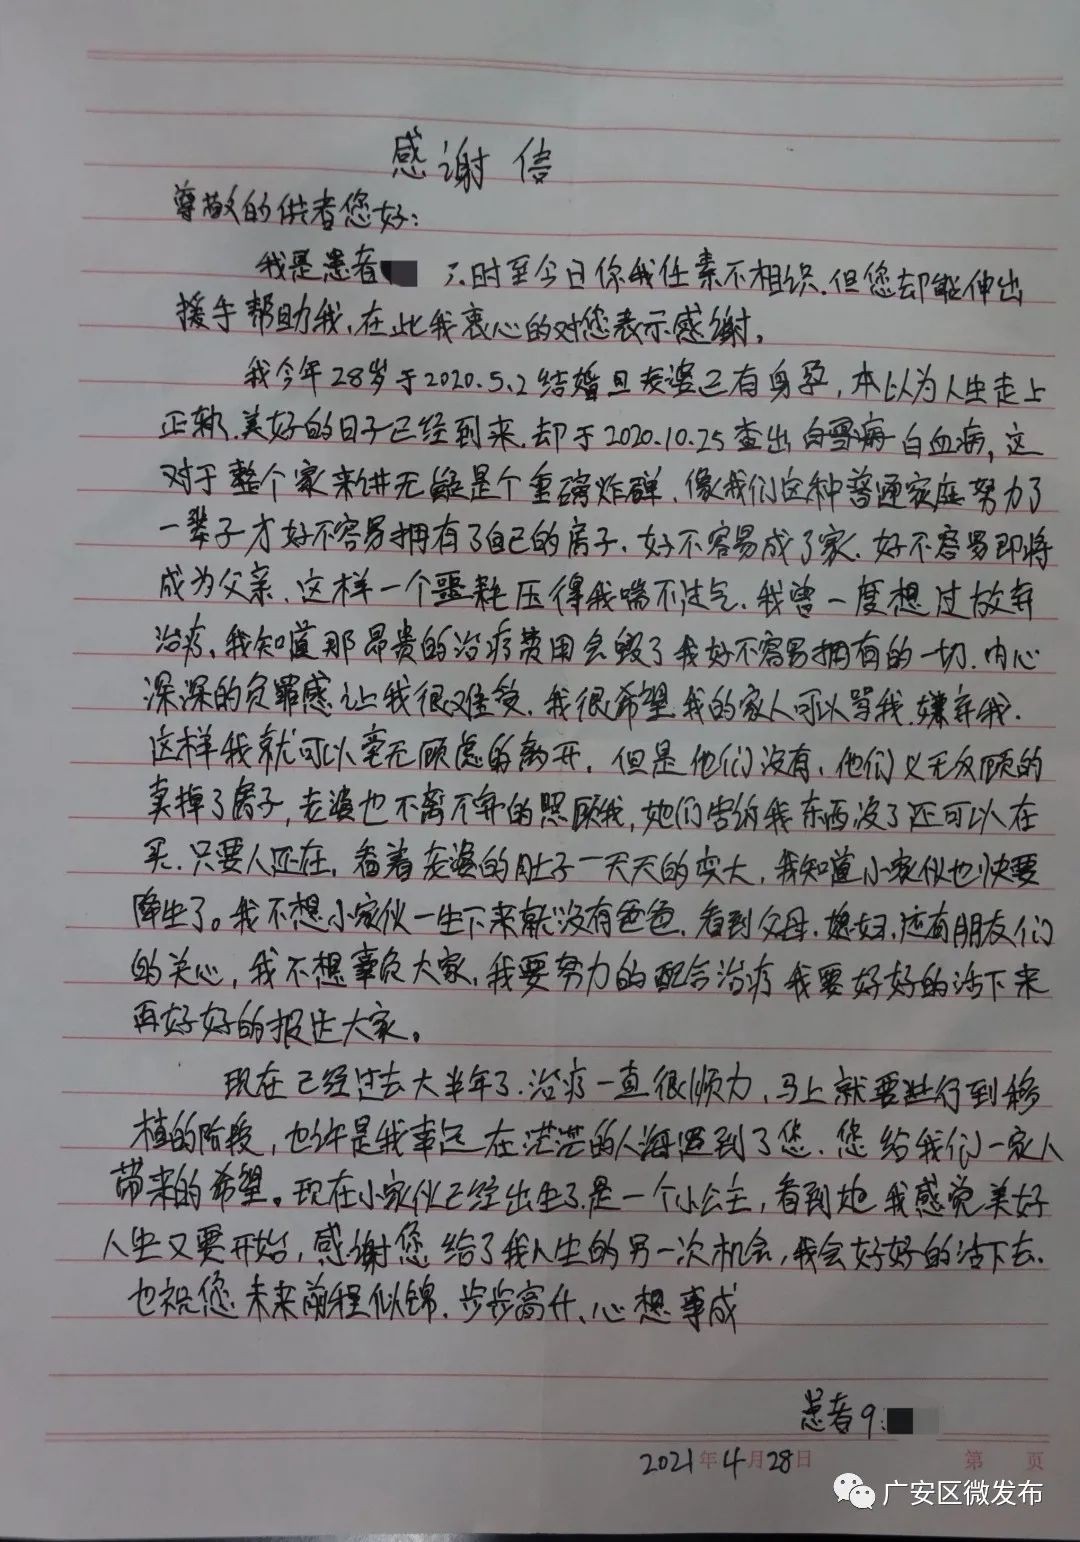 感谢信
尊敬的供者您好：
我是患者 时至今日你我任素不相识.但您却能伸出
援手帮助我,在此我衷心的对您表示感谢。
我今年28岁于2020.5.2结婚且老婆已有身孕,本以为人生走上
正轨.美好的日子已经到来.却于2020.10.25查出 白血病,这
对于整个家来讲无疑是个重磅炸弹.像我们这种普通家庭努力了
一辈子才好不容易拥有了自己的房子.好不容易成了家.好不容易即将
成为父亲.这样一个噩耗压得我喘不过气.我曾一度想过放弃
治疗。我知道那昂贵的治疗费用会毁了我好不容易拥有的一切.内心
深深的负罪感让我很难受.我很希望我的家人可以骂我.嫌弃我.
这样我就可以毫无顾虑的离开.但是他们没有.他们义无反顾的
卖掉了房子,老婆也不离不弃的照顾我,她们告诉我东西没了还可以在
买.只要人还在.看着老婆的肚子一天天的变大,我知道小家伙也快要
降生了。我不想小家伙一生下来就没有爸爸.看到父母.媳妇.还有朋友们
的关心,我不想辜负大家,我要努力的配合治疗我要好好的活下来
再好好的报达大家。
现在已经过去大半年了.治疗一直很顺力,马上就要进行到移
植的阶段,也许是我幸运在茫茫的人海遇到了您.您给我们一家人
带来的希望。现在小家伙已经出生了.是一个小公主,看到她我感觉美好
人生又要开始,感谢您给了我人生的另一次机会,我会好好的活下去.
也祝您未来前程似锦.步步高升、心想事成
患者
2021年4月28日
第 页
广安区微发布